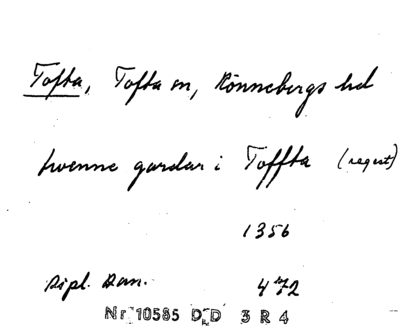 Tofta, Tofta sn, Rönnebergs hd
twenne gardar i Toffta (regest)
1356
Dipl. Dan. 4 72
Nr 10585 D D 3 R 4